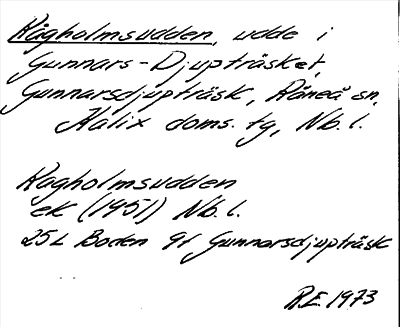 Kågholmsudden, udde i
Gunnars-Djupträsket,
Gunnarsdjupträsk, Råneå sn,
Kalix doms. tg, Nb. l.
Kagholmsudden
ek (1951) Nb. l.
25L Boden 9f Gunnarsdjupträsk
R.E. 1973